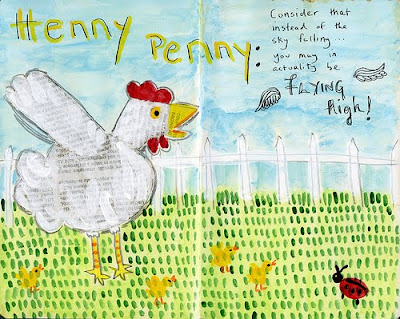 Henny Penny:
Consider that
instead of the
sky falling...
you may in
actuality be
FLYING
high!